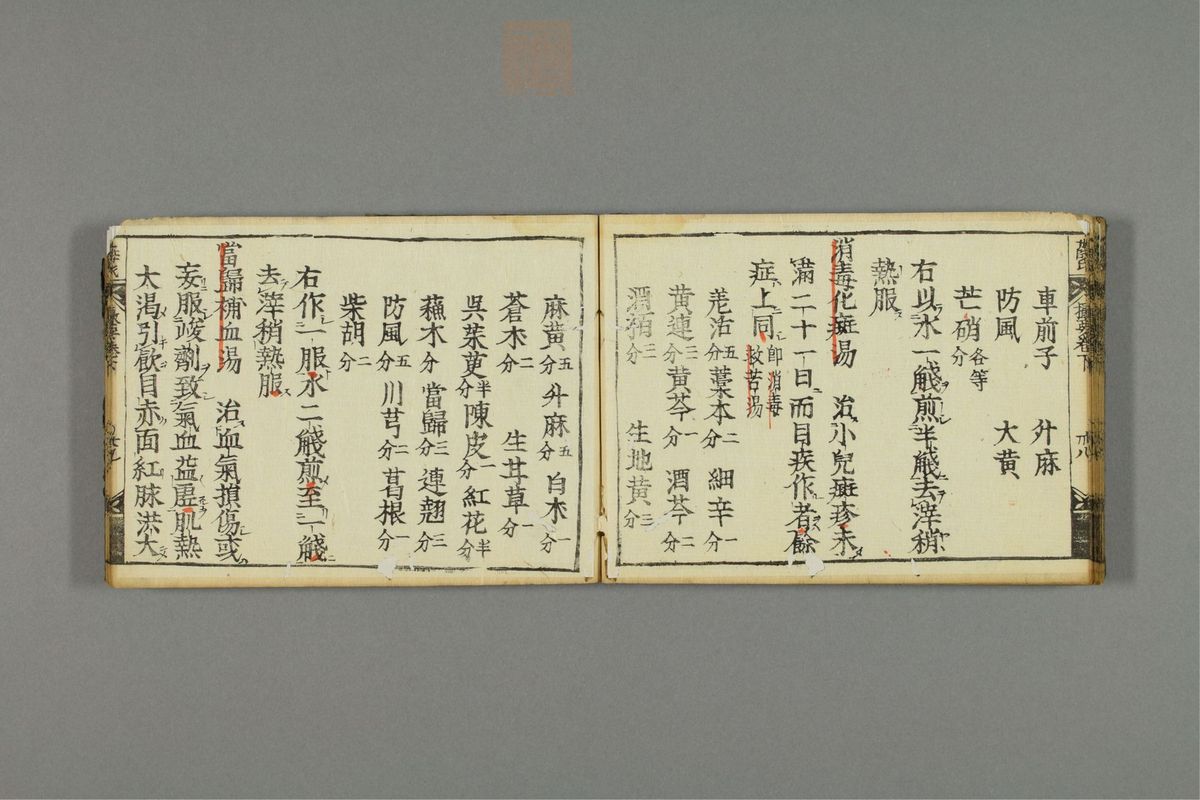 車前子 升麻
防風 大黄
芒硝各等分
右以水一觱煎半觱去滓稍
熱服
消毒化斑湯 治小兒斑疹未
滿二十一日而目疾作者餘
症上同即消毒救苦湯
羗活五分 藁本二分 細辛一分
黄連三分 黄芩一分 酒芩二分
酒栢三分 生地黄三分
麻黄五分 升麻五分 白朮一分
蒼朮二分 生甘草一分
呉茱萸半分 陳皮一分 紅花半分
蘓木分 當歸三分 連翹三分
防風五分 川芎二分 葛根一分
柴胡二分
右作一服水二觱煎至一觱
去滓稍熱服
當歸補血湯 治血氣損傷或
妄服峻劑致氣血益虚肌熱
大渇引飲目赤面紅脉洪大